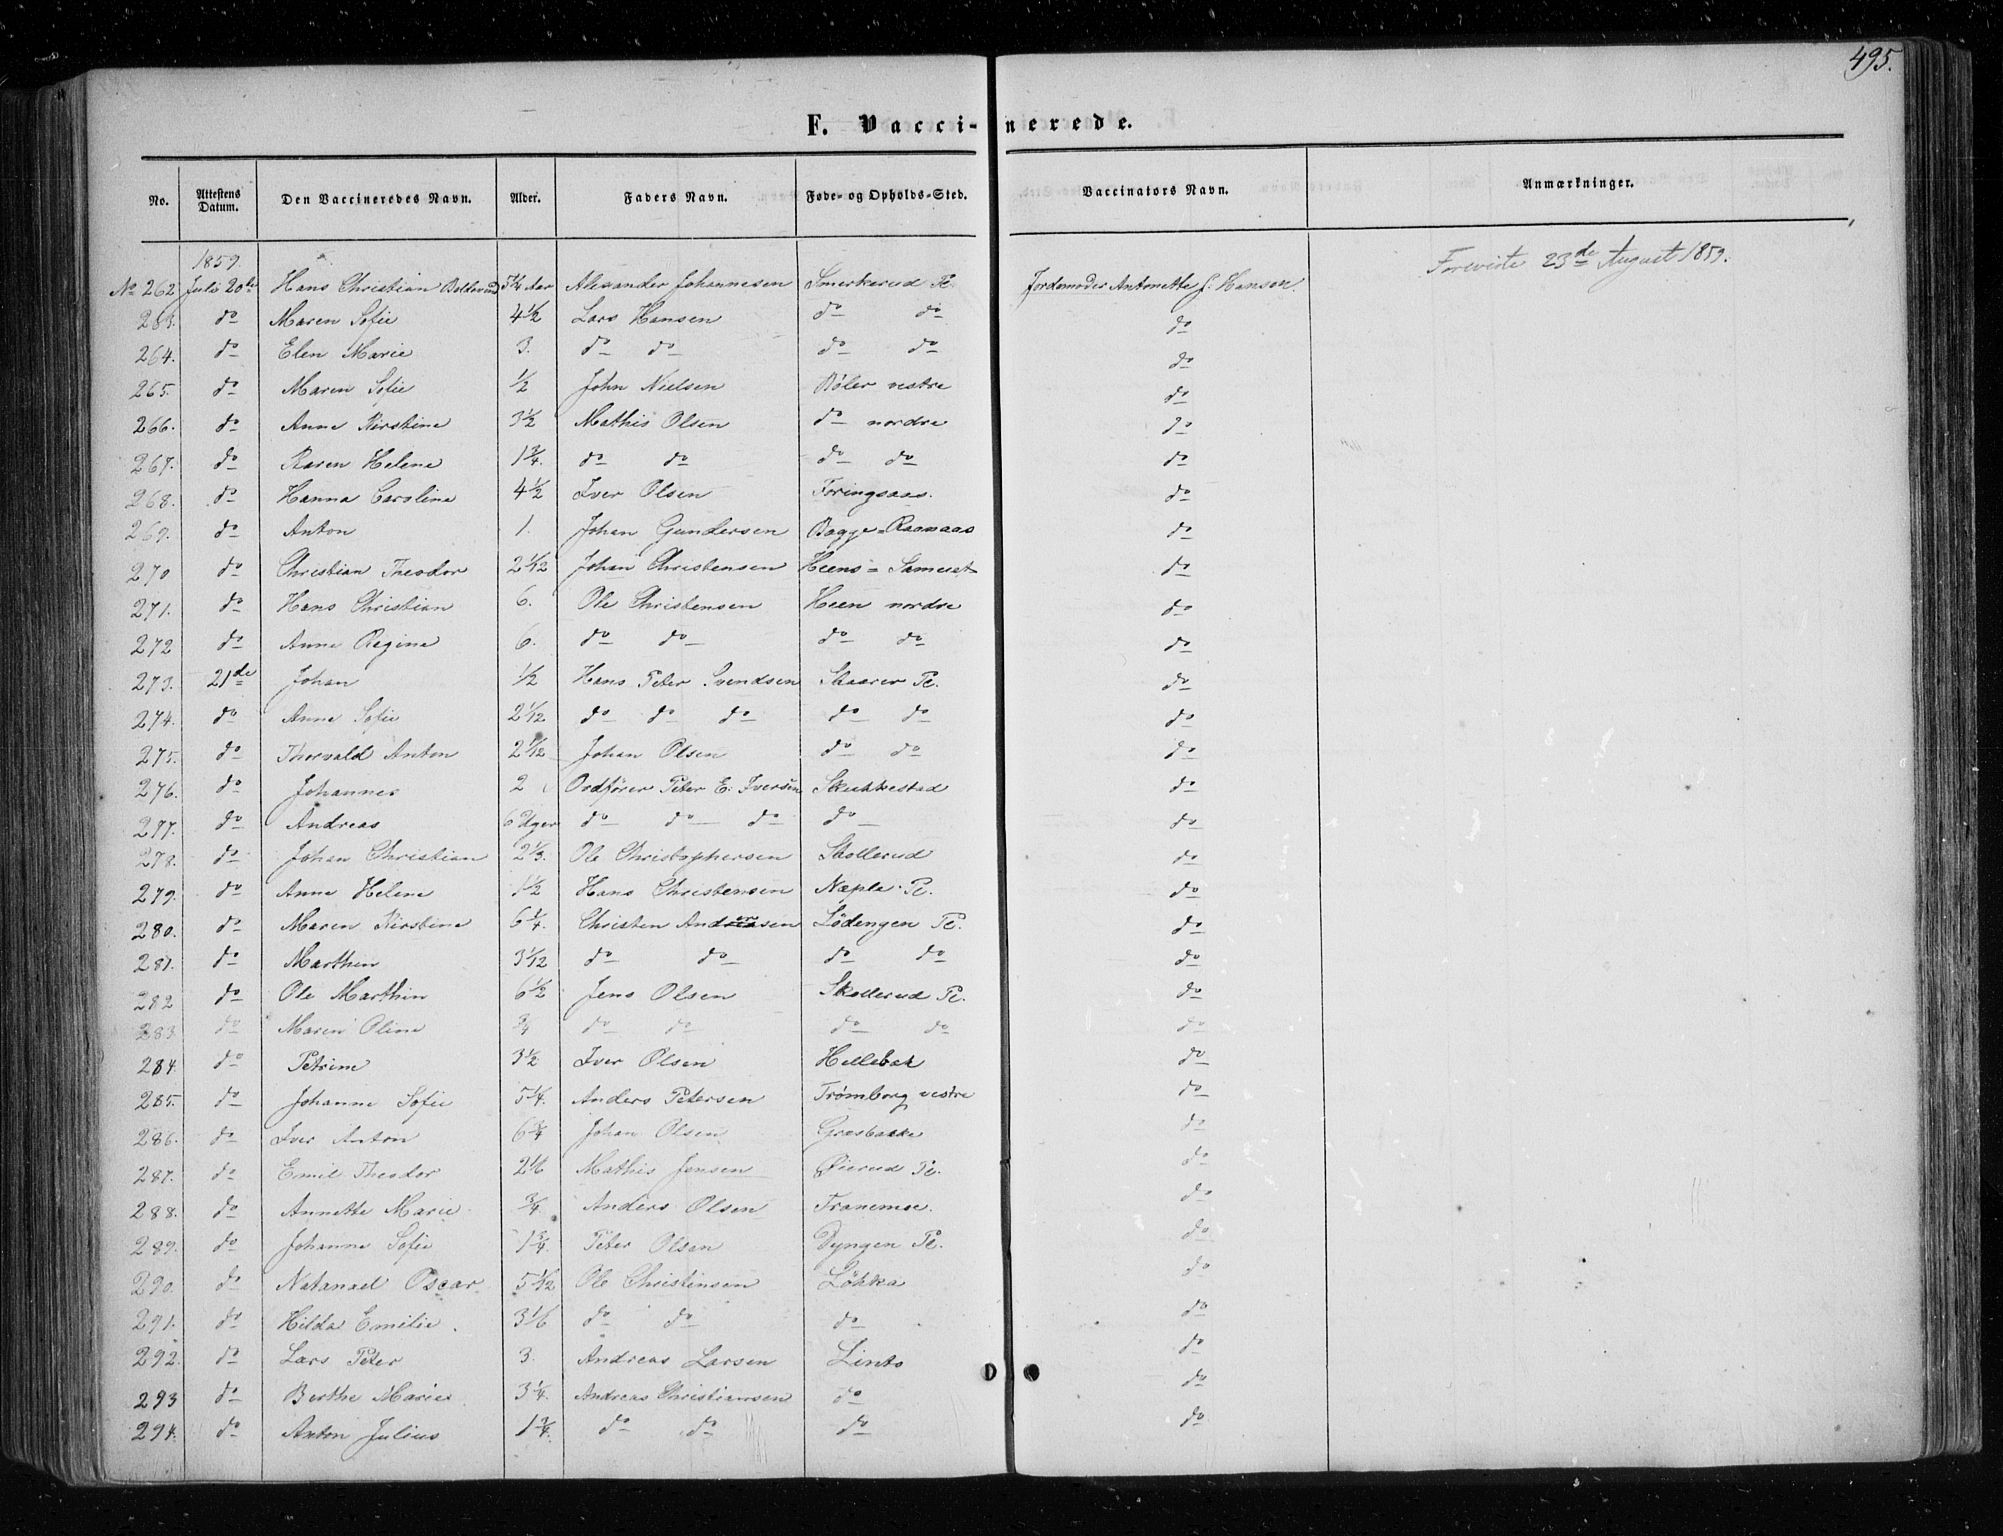 495.
F. Vaccinerede.
No. Attestens Datum. Den Vaccineredes Navn. Alder. Faders Navn. Føde- og Opholds-Sted. Vaccinators Navn. Anmærkninger.
1859. Foreviste 23de August 1859.
No 262 Juli 20de Hans Christian 5¼ Aar Alexander Johannesen Smerkerud Pl. Jordemoder Antonette J. Hansen.
263. do Maren Sofie 4½ Lars Hansen do do do
264. do Elen Marie 3. do do do do do
265. do Maren Sofie ½ John Nielsen Bøler vestre do
266. do Anne Kirstine 3½ Mathis Olsen do nordre do
267. do Karen Helene 1¾. do do do do do
268. do Hanna Caroline 4½ Iver Olsen Foringsaas. do
269. do Anton 1. Johan Gundersen Bagge-Raanaas do
270 do Christian Theodor 2 1/12 Johan Christensen Heens= do
271. do Hans Christian 6. Ole Christensen Heen nordre do
272 do Anne Regine 6. do do do do do
273. 21de Johan ½ Hans Peter Svendsen Skaarer Pl. do
274. do Anne Sofie 2 1/12 do do do do do do
275. do Thorvald Anton 2 1/12 Johan Olsen do do do
276. do Johannes 2 Ordfører Peter E. Iversen Skukkestad do
277. do Andreas 6 Uger do do do do do
278. do Johan Christian 2⅓. Ole Christophersen Skollerud do
279. do Anne Helene 1½ Hans Christensen Næple Pl. do
280. do Maren Kirstine 6¼. Christen Andersen Lødengen Pl. do
281. do Marthin 3 1/12 do do do do do
282 do Ole Marthin 6½ Jens Olsen Skollerud Pl. do
283 do Maren Oline ¾ do do do do do
284. do Petrine 3½. Iver Olsen Hillebæk do
285. do Johanne Sofie 5¼. Anders Petersen Trømborg vestre do
286. do Iver Anton 6¾ Johan Olsen Græsbakke do
287. do Emil Theodor 2⅙ Mathis Jensen Øierud Pl. do
288. do Annette Marie ¾. Anders Olsen Tranemoe. do
289. do Johanne Sofie 1¾. Peter Olsen Dyngen Pl. do
290. do Natanael Oscar 5 1/12 Ole Christensen Løkka do
291. do Hilda Emilie 3⅙ do do do do
292. do Lars Peter 3. Andreas Larsen Linto do
293 do Berthe Marie 3¼. Andreas Christiansen do do
294. do Anton Julius 1¾. do do do do